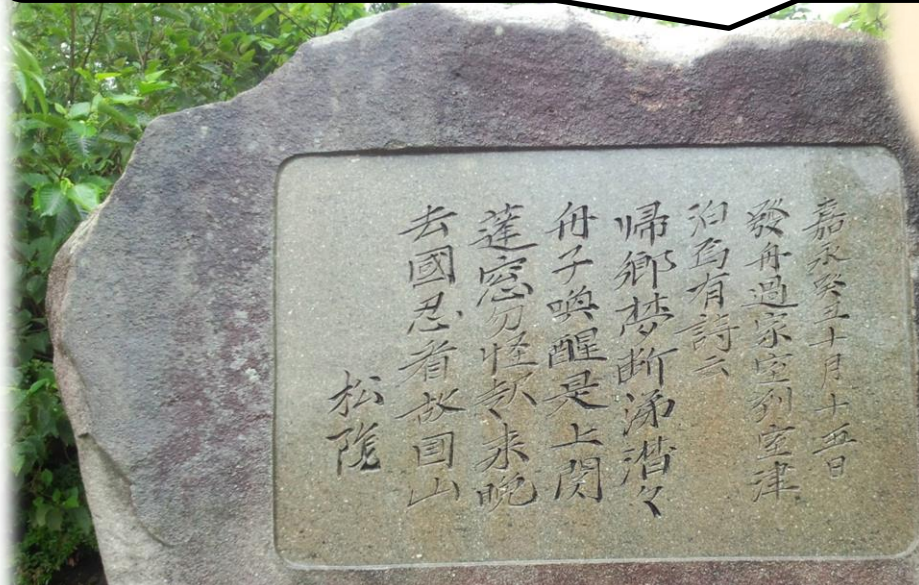 嘉永癸丑十月十五日
發舟過家室到室津
泊焉有詩云
帰郷夢断涕潸々
舟子喚醒是上関
蓬窓勿怪来晩
去國忍看故国山
松陰